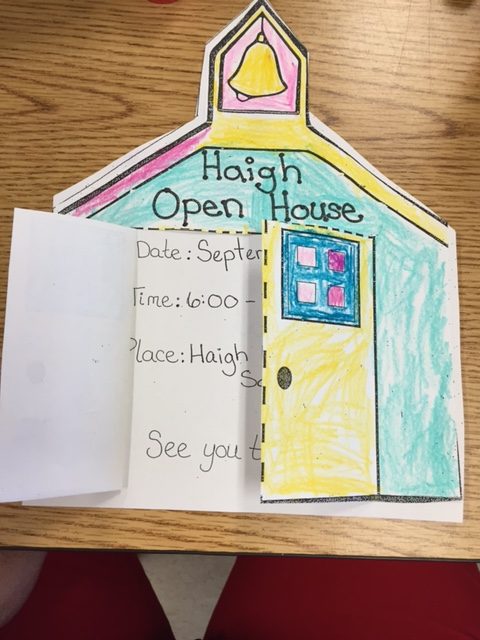 Haigh
Open House
Date:
Time: 6:00 -
Place: Haigh
See you